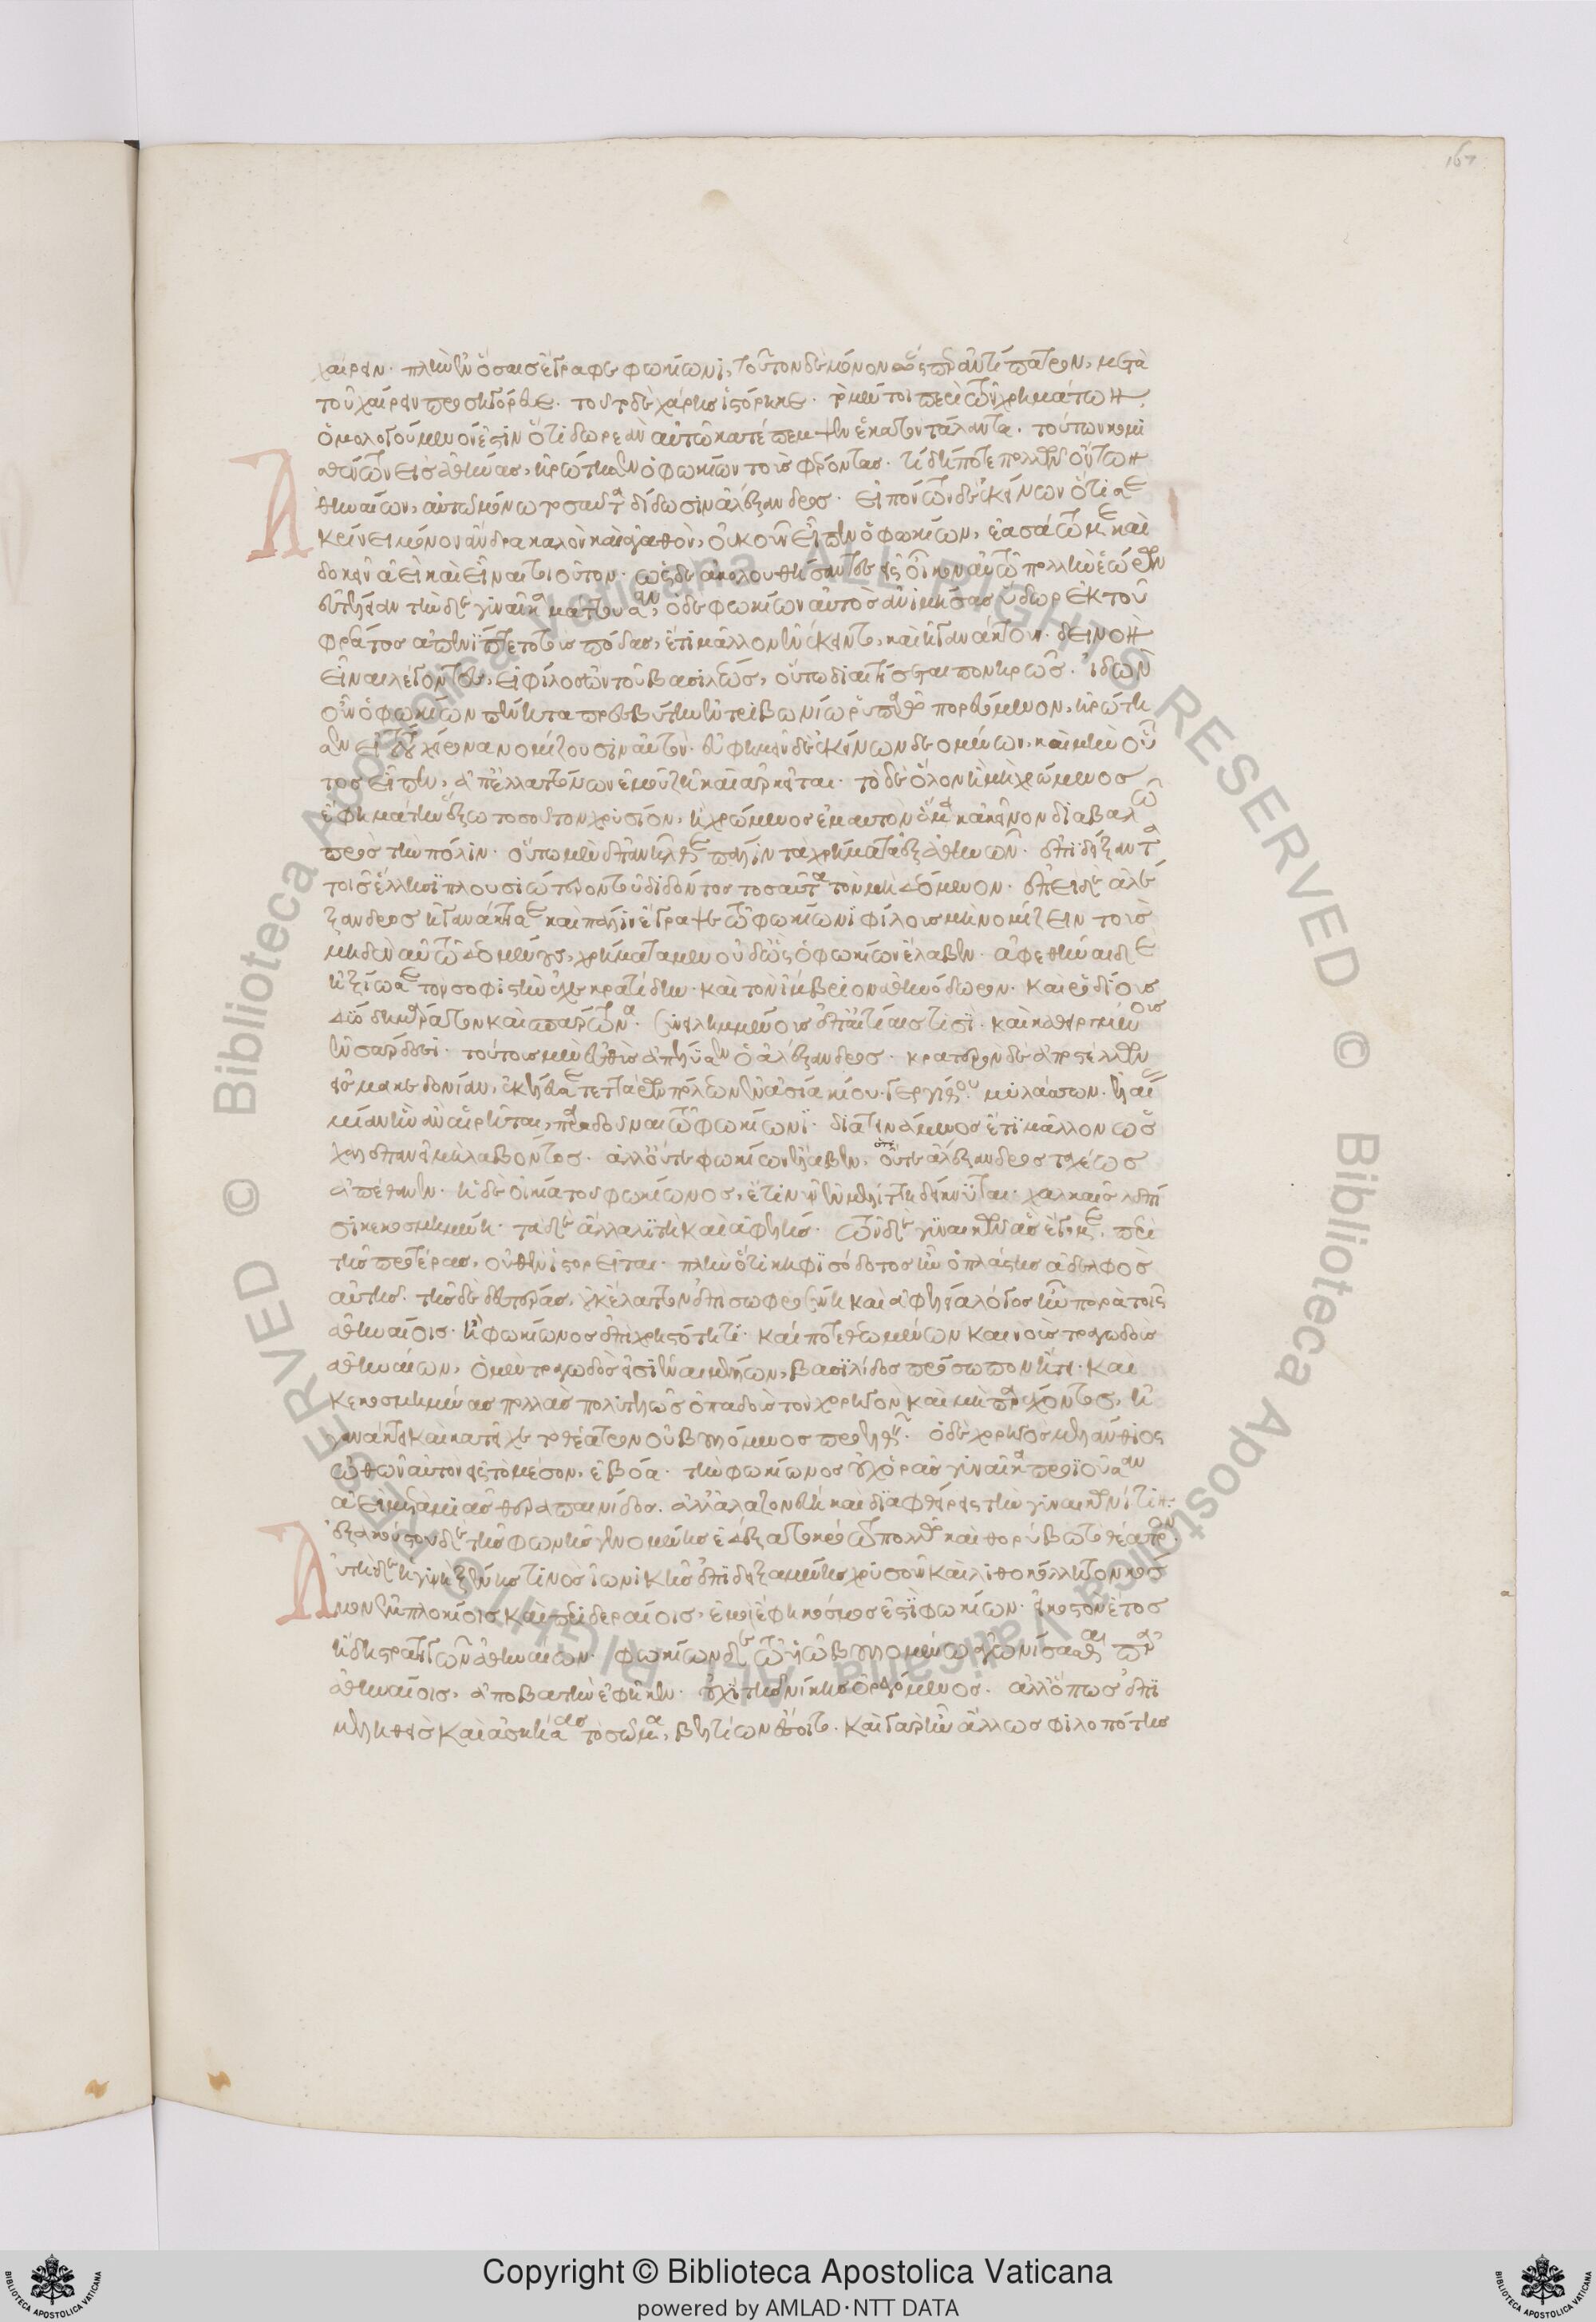 χαίρειν· πλὴν ἐν ὅσαις ἔγραφε φωκίωνι, τοῦτον δὲ μόνον ὥσπερ ἀντίπατρον, μετὰ
τοῦ χαίρειν προσηγόρευε. τοῦτο δὲ χάρης ἱστόρηκε. τὸ μέντοι περὶ τῶν χρημάτων
ὁμολογούμενον ἐστὶν ὅτι δωρεὰν αὐτῶ κατέπεμψεν ἑκατὸν τάλαντα. τούτων κομι
σθέντων εἰς ἀθήνας, ἠρώτησεν ὁ φωκίων τοὺς φέροντας. τί δήποτε πολλῶν ὄντων
ἀθηναίων, αὐτῶ μόνω τοσαῦτα δίδωσιν ἀλέξανδρος. εἰπόντων δ' ἐκείνων ὅτι σὲ
κρίνει μόνον ἄνδρα καλὸν καὶ ἀγαθὸν, οὐκοῦν εἶπεν ὁ φωκίων, ἐασάτω με καὶ
δοκεῖν ἀεὶ καὶ εἶναι τοιοῦτον. ὡς δὲ ἀκολουθήσαντες εἰς οἶκον αὐτῶ πολλὴν ἑώρων
εὐτέλειαν τὴν δὲ γυναῖκα μάττουσαν, ὁ δὲ φωκίων αὐτὸς ἀνιμήσας ὕδωρ ἐκ τοῦ
φρέατος ἀπενίπτετο τοὺς πόδας, ἔτι μᾶλλον ἐνέκειντο, καὶ ἠγανάκτουν. δεινὸν
εἶναι λέγοντες, εἰ φίλος ὢν τοῦ βασιλέως, οὕτω διαιτήσεται πονηρῶς. ἰδὼν
οὖν ὁ φωκίων πένητα πρεσβύτην ἐν τριβωνίω ῥυπαρῶ πορευόμενον, ἠρώτη
σεν εἰ τούτου χείρονα νομίζουσιν αὐτόν. εὐφημεῖν δ' ἐκείνων δεομένων, καὶ μὴν οὗ
τος εἶπεν, ἀπ' ἐλαττόνων ἐμοῦ ζῆ καὶ ἀρκεῖται. τὸ δὲ ὅλον ἢ μὴ χρώμενος
ἔφη μάτην ἕξω τοσοῦτον χρυσίον, ἢ χρώμενος ἐμαυτὸν ἅμα κἀκεῖνον διαβαλῶ
πρὸς τὴν πόλιν. οὕτω μὲν ἐπανῆλθε πάλιν τὰ χρήματα ἐξ ἀθηνῶν. ἐπιδείξαντα
τοῖς ἕλλησι πλουσιώτερον τοῦ διδόντος τοσαῦτα τὸν μὴ δεόμενον. ἐπεὶ δὲ ἀλέ
ξανδρος ἠγανάκτησε καὶ πάλιν ἔγραψε τῶ φωκίωνι φίλους μὴ νομίζειν τοὺς
μηδὲν αὐτοῦ δεομένους, χρήματα μὲν οὐδ' ὣς ὁ φωκίων ἔλαβεν. ἀφεθῆναι δὲ
ἠξίωσε τὸν σοφιστὴν ἐχεκρατίδην. καὶ τὸν ἴμβριον ἀθηνόδωρον. καὶ ῥοδίους
δύο δημάρατον καὶ σπάρτωνα. συνειλημμένους ἐπ' αἰτίαις τισὶ. καὶ καθειργμένους
ἐν σάρδεσι. τούτους μὲν εὐθὺς ἀπέλυσεν ὁ ἀλέξανδρος. κρατερὸν δὲ ἀποστέλλων
εἰς μακεδονίαν, ἐκέλευσε τεττάρων πόλεων ἐν ἀσία κίου. γεργίθου. μυλάσσων. ἐλαί
μίαν ἣν ἂν αἱρῆται, παραδοῦναι τῶ φωκίωνι. διατεινάμενος ἔτι μᾶλλον ὡς
μὴ λαβόντος. ἀλλ' οὔτε φωκίων ἔλαβεν, οὔτε ἀλέξανδρος ταχέως
ἀπέθανεν. ἡ δὲ οἰκία τοῦ φωκίωνος, ἔτι νῦν ἐν μελίτη δείκνυται. χαλκαῖς λεπί
σι κεκοσμημένη. τὰ δὲ ἄλλα λιτὴ καὶ ἀφελής. τῶν δὲ γυναικῶν ἃς ἔγημε, περὶ
τῆς προτέρας, οὐθὲν ἱστορεῖται. πλὴν ὅτι κηφισόδοτος ἦν ὁ πλάστης ἀδελφὸς
αὐτῆς. τῆς δὲ δευτέρας, οὐκ ἐλάττων ἐπὶ σωφροσύνη καὶ ἀφελεία λόγος ἦν παρὰ τοῖς
ἀθηναίοις. ἢ φωκίωνος ἐπὶ χρηστότητι. καί ποτε θεωμένων καινοὺς τραγωδοὺς
ἀθηναίων, ὁ μὲν τραγωδὸς εἰσιέναι μέλλων, βασιλίδος πρόσωπον ἤτει. καὶ
κεκοσμημένας πολλὰς πολυτελῶς ὀπαδοὺς τὸν χορηγὸν καὶ μὴ παρέχοντος, ἠ
γανάκτει καὶ κατεῖχε τὸ θέατρον οὐ βουλόμενος προελθεῖν. ὁ δὲ χορηγὸς μελάνθιος
ὠθῶν αὐτὸν εἰς τὸ μέσον, ἐβόα. τὴν φωκίωνος οὐχ ὁρᾶς γυναῖκα προϊοῦσαν
ἀεὶ μετὰ μιᾶς θεραπαινίδος. ἀλλ' ἀλαζονεύη καὶ διαφθείρεις τὴν γυναικωνῖτιν.
ἐξακούστου δὲ τῆς φωνῆς γενομένης ἐδέξατο κρότω πολλῶ καὶ θορύβω τὸ θέατρον.
αὐτὴ δὲ ἡ γυνὴ ξένης τινὸς ἰωνικῆς ἐπιδειξαμένης χρυσοῦν καὶ λιθοκόλλητον κόσ
μον ἐν πλοκίοις καὶ περιδεραίοις, ἐμοὶ ἔφη κόσμος ἐστὶ φωκίων. εἰκοστὸν ἔτος
ἤδη στρατηγῶν ἀθηναίων. φωκίων δὲ τῶ υἱῶ βουλομένω ἀγωνίσασθαι παν
ἀθηναίοις, ἀποβάτην ἐφῆκεν. οὐχὶ τῆς νίκης ὀρεγόμενος. ἀλλ' ὅπως ἐπι
μεληθεὶς καὶ ἀσκήσας τὸ σῶμα, βελτίων ἔσοιτο. καὶ γὰρ ἦν ἄλλως φιλοπότης
Copyright © Biblioteca Apostolica Vaticana
powered by AMLAD·NTT DATA